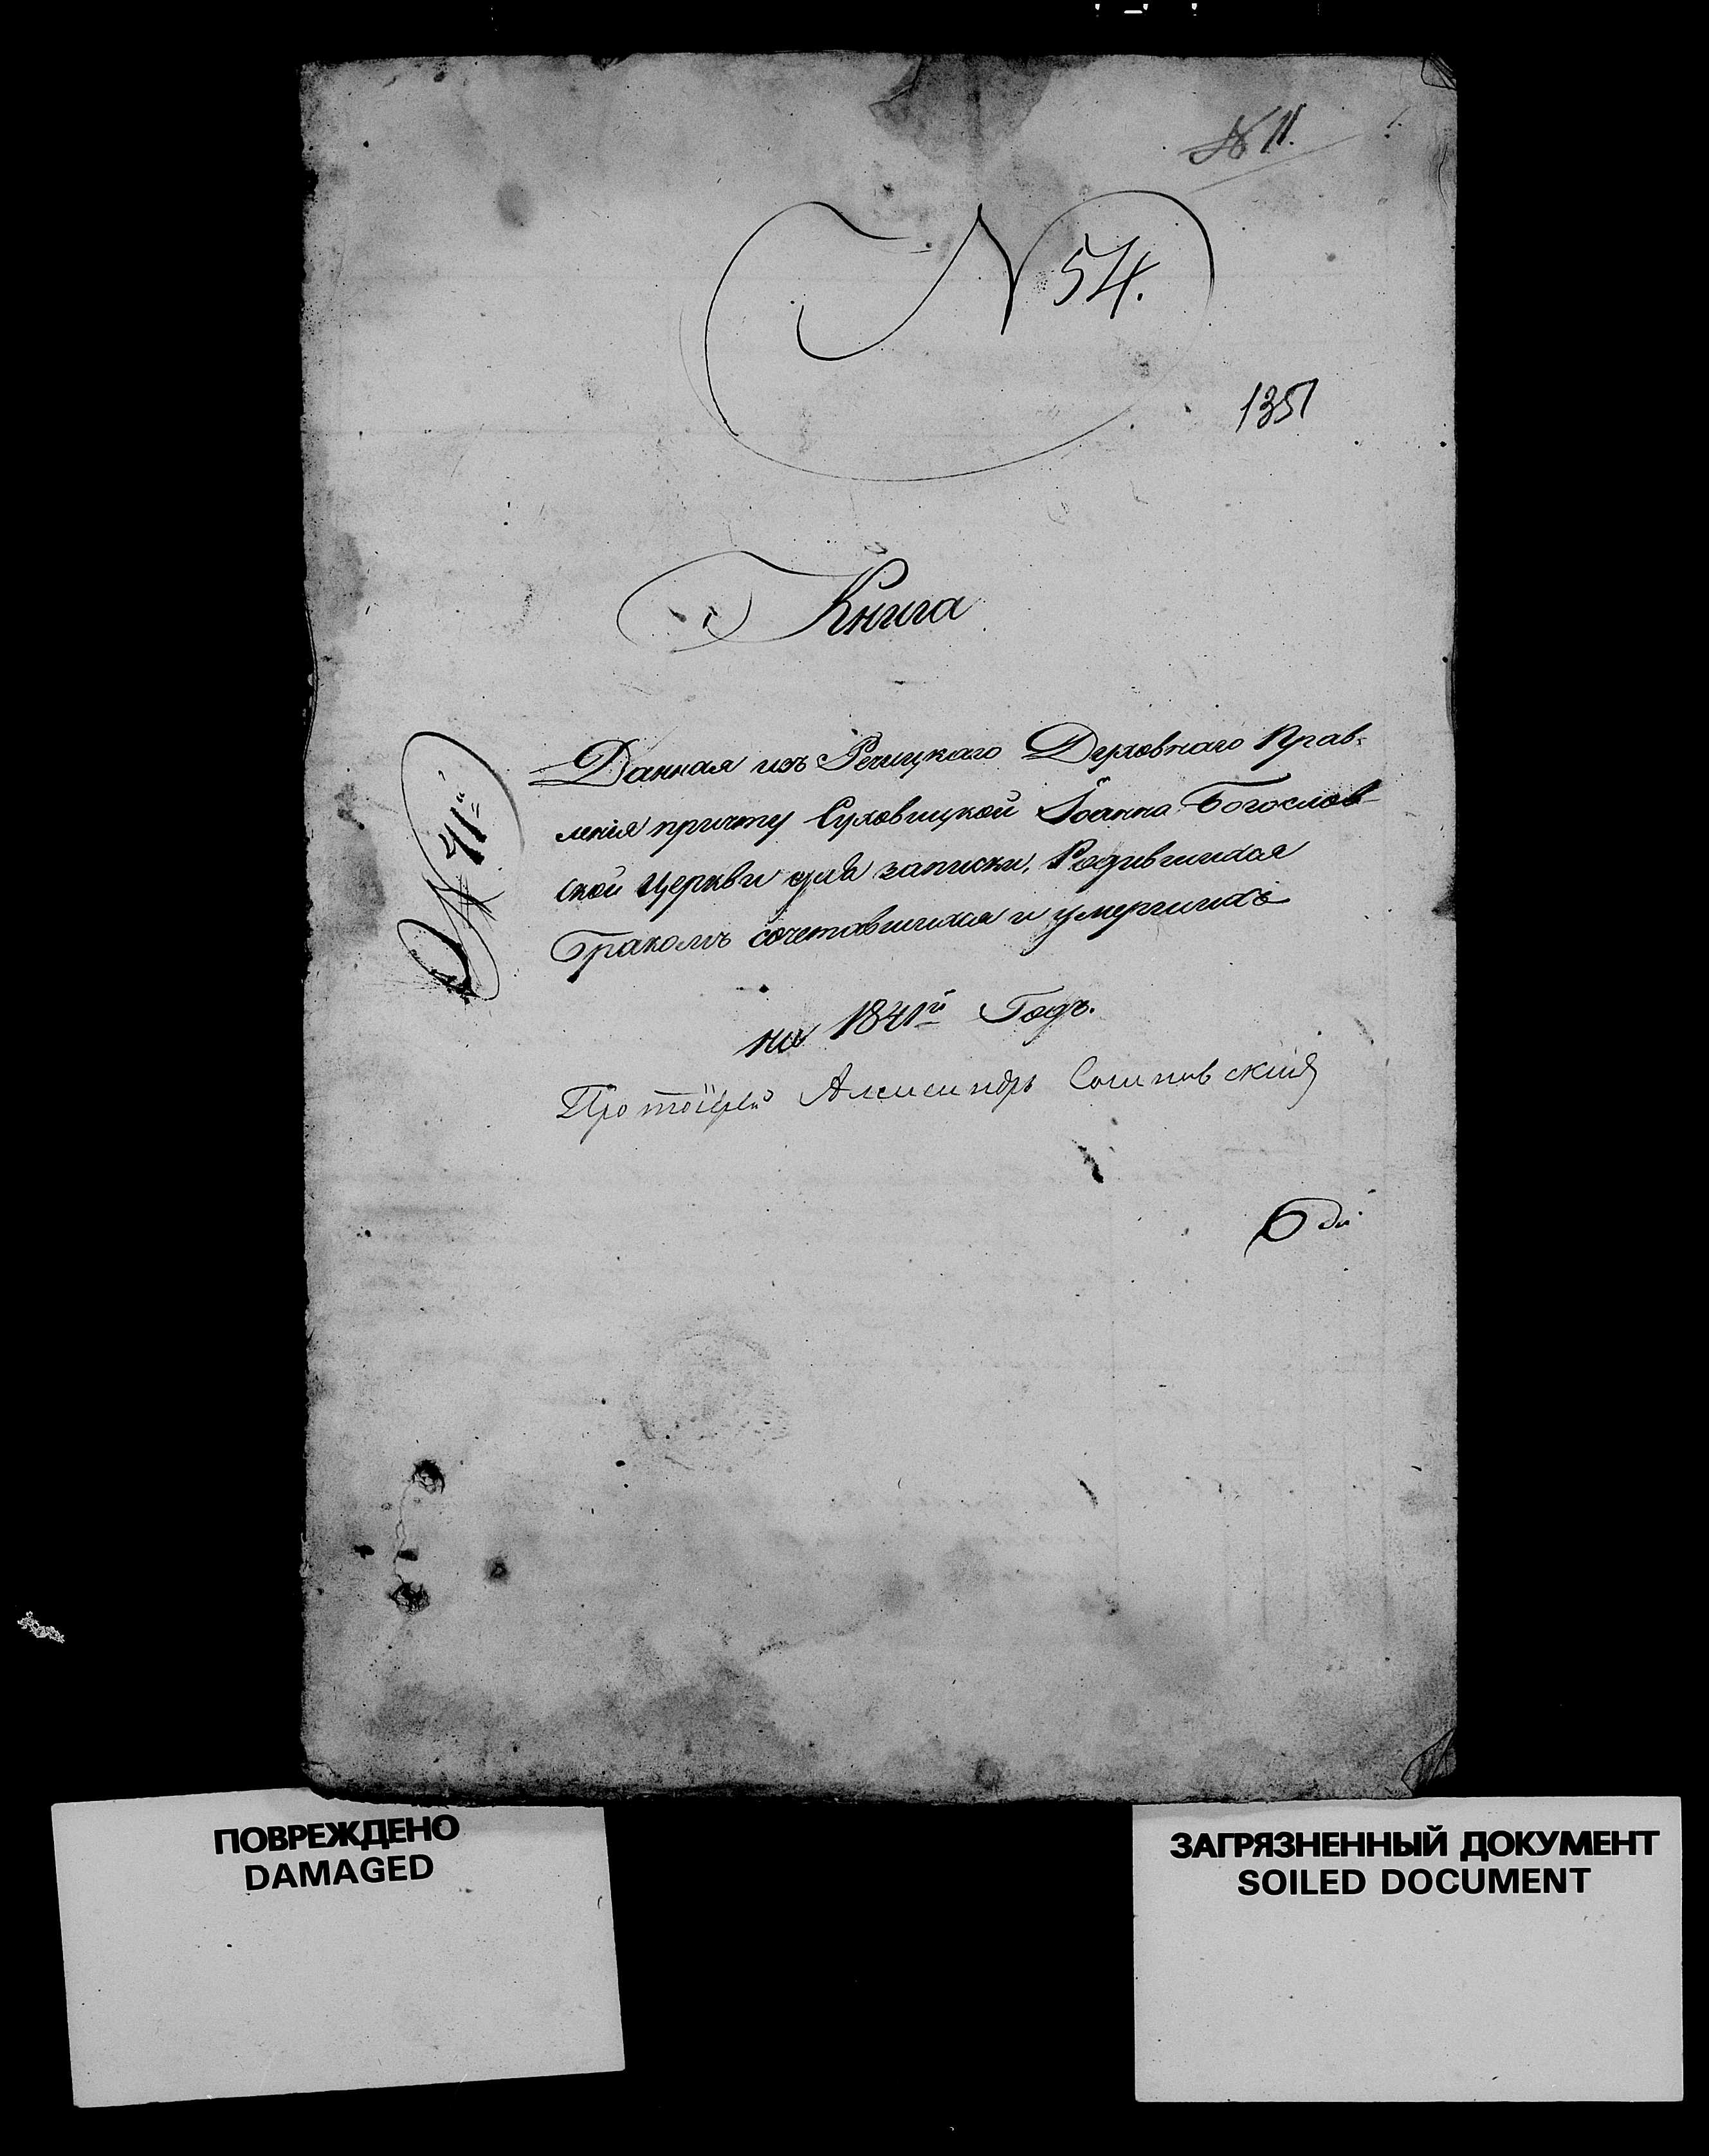 № 11.
N 54.
1351
Книга
Данная изъ Речицкаго Духовнаго Прав-
ленія причту Суховицкой Іоанна Богослов-
ской Церкви для записки, Родившихся
Бракомъ сочетавшихся и умершихъ
на 1841й Годъ.
Протоіерей Александръ
№ 41.
ПОВРЕЖДЕНО
DAMAGED
ЗАГРЯЗНЕННЫЙ ДОКУМЕНТ
SOILED DOCUMENT